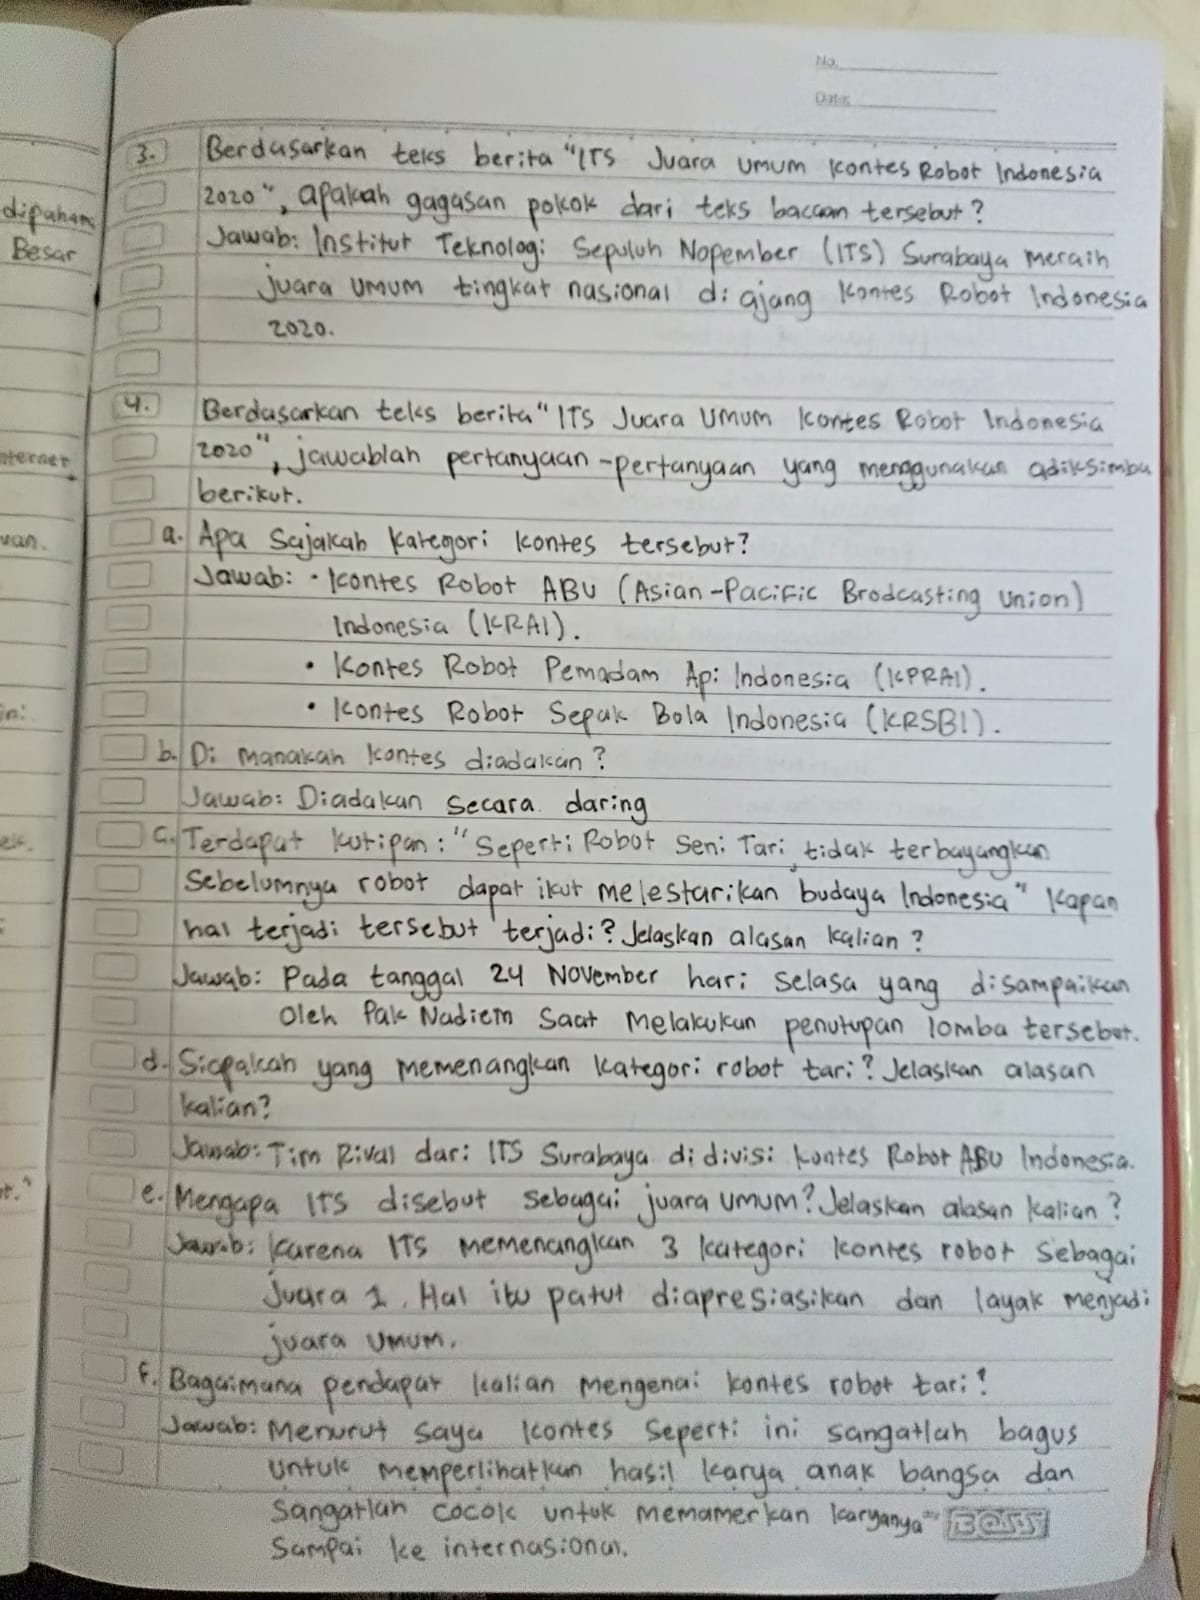 No.
Date:
dipaham
Besar
nternet
van.
3. Berdasarkan teks berita "ITS Juara Umum Kontes Robot Indonesia
2020", apakah gagasan pokok dari teks bacaan tersebut?
Jawab: Institut Teknologi Sepuluh Nopember (ITS) Surabaya meraih
juara umum tingkat nasional di ajang Kontes Robot Indonesia
2020.
4. Berdasarkan teks berita "ITS Juara Umum Kontes Robot Indonesia
2020", jawablah pertanyaan-pertanyaan yang menggunakan adiksimba
berikut.
a. Apa sajakah kategori kontes tersebut?
Jawab: • Kontes Robot ABU (Asian-Pacific Brodcasting Union)
Indonesia (KRAI).
• Kontes Robot Pemadam Api Indonesia (KPRAI).
• Kontes Robot Sepak Bola Indonesia (KRSBI).
b. Di manakah kontes diadakan?
Jawab: Diadakan secara daring
c. Terdapat kutipan: "Seperti Robot Seni Tari, tidak terbayangkan
sebelumnya robot dapat ikut melestarikan budaya Indonesia" Kapan
hal terjadi tersebut terjadi? Jelaskan alasan kalian?
Jawab: Pada tanggal 24 November hari Selasa yang disampaikan
oleh Pak Nadiem saat melakukan penutupan lomba tersebut.
d. Siapakah yang memenangkan kategori robot tari? Jelaskan alasan
kalian?
Jawab: Tim Rival dari ITS Surabaya di divisi Kontes Robot ABU Indonesia.
e. Mengapa ITS disebut sebagai juara umum? Jelaskan alasan kalian?
Jawab: Karena ITS memenangkan 3 kategori kontes robot sebagai
Juara 1. Hal itu patut diapresiasikan dan layak menjadi
juara umum.
f. Bagaimana pendapat kalian mengenai kontes robot tari?
Jawab: Menurut saya kontes seperti ini sangatlah bagus
untuk memperlihatkan hasil karya anak bangsa dan
sangatlah cocok untuk memamerkan karyanya
sampai ke internasional.
BOSS